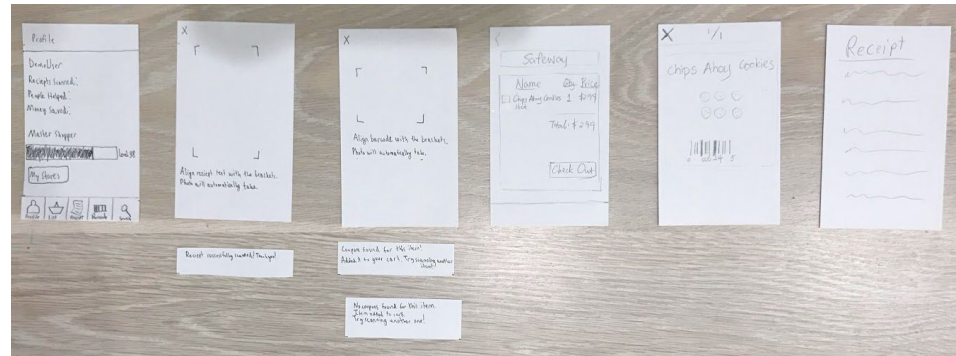 Profile
Demo User
Reciepts Scanned:
People Helped:
Money Saved:
Master Shopper
level 98
My Stores
Profile
List
Receipt
Barcode
X
Align reciept text with the brackets.
Photo will automatically take.
Reciept successfully scanned!
X
Align barcode with the brackets.
Photo will automatically take.
Coupon found for this item!
Added to your cart. Try scanning another
item!
No coupon found for this item.
Item added to cart.
Try scanning another one!
<
Safeway
Name Qty. Price
Chips Ahoy Cookies 1 $2.99
Total: $2.99
Check Out
X 1/1
Chips Ahoy Cookies
Receipt